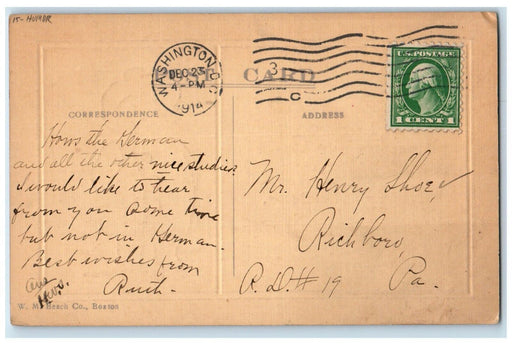 15- HUMOR
WASHINGTON, D.C.
DEC 23
4-PM
1914
3
C
U.S. POSTAGE
1 CENT 1
CARD
CORRESPONDENCE
ADDRESS
Hows the German
and all the other nice studies.
I would like to hear
from you some time
but not in German.
Best wishes from
Ruth.
Mr. Henry
Richboro,
R.D.# 19 Pa.
W. M. Beach Co., Boston